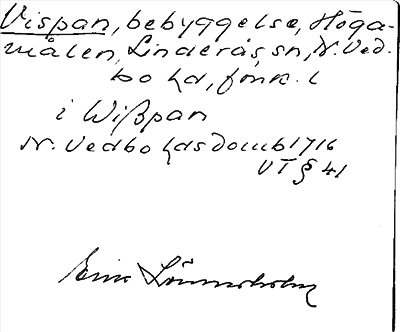 Vispan, bebyggelse, Höga-
målen, Linderås sn, N. Ved-
bo hd, Jönk. l
i Wißpan
N. Vedbo hds domb 1716
VT § 41